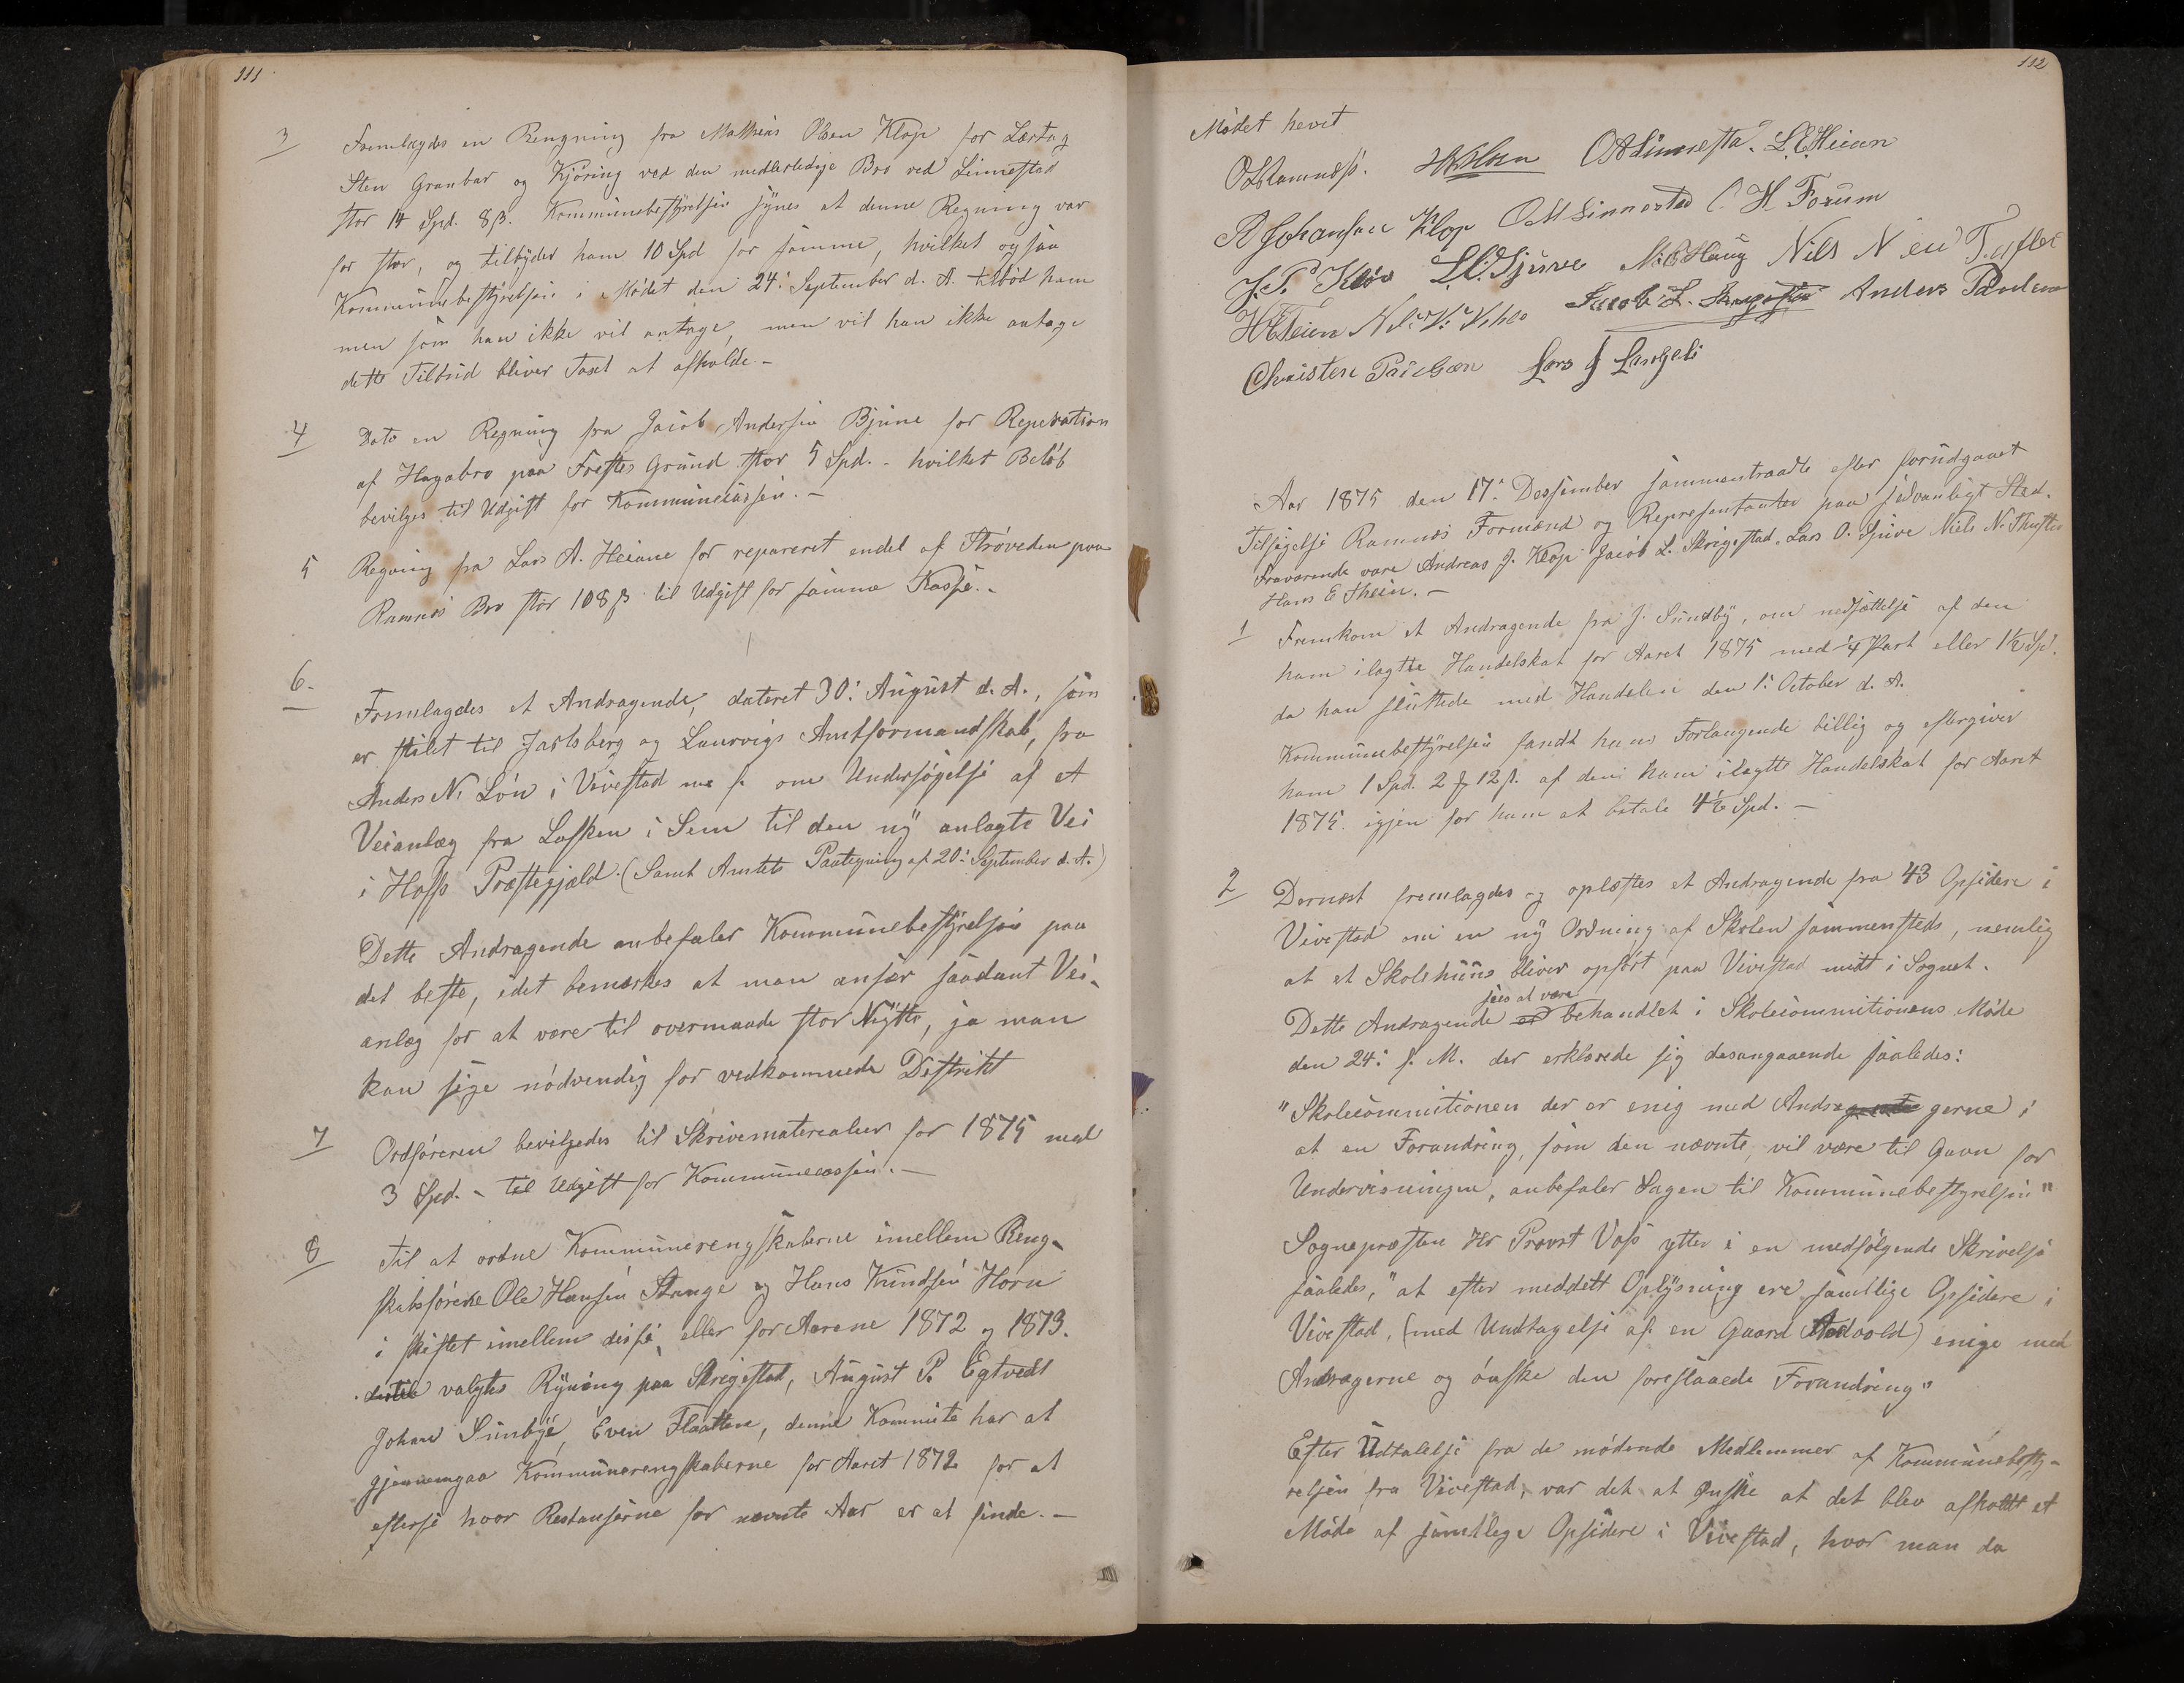 111
3 Fremlagdes en Rengning fra Mathias Olsen Klop for Læstag
Sten Granbar og Kjøring ved den medlerledige Bro ved Linnestad
stor 14 Spd. 8 ß. Kommunebestyrelsen synes at denne Regning var
for stor, og tilbyder ham 10 Spd for samme, hvilket ogsaa
Kommunebestyrelsen i Mødet den 24: September d. A. tilbød ham
men som han ikke vil antage, men vil han ikke antage
dette Tilbud bliver Taxt at afholde. –
4 Dato en Regning fra Jacob Andersen Bjune for Reperation
af Hagabro paa Freste Grund stor 5 Spd. – hvilket Beløb
bevilges til Udgift for Kommunecassen. –
5 Regning fra Lars A. Heiane for repareret endel af Strøveden paa
Ramnes Bro stor 108 ß til Udgift for samme Kasse. –
6. Fremlagdes et Andragende, dateret 30: August d. A., som
er stilet til Jarlsberg og Laurvigs Amtformandskab, fra
Anders N. Løn i Vivestad m. f. om Undersøgelse af et
Veianlæg fra Lofsken i Sem til den ny anlagte Vei
i Hoffs Præstegjæld. (Samt Amtets Paategning af 20: September d. A.)
Dette Andragende anbefaler Kommunebestyrelsen paa
det beste, idet bemærkes at man ansær saadant Vei-
anlæg for at være til overmaade stor Nytte, ja man
kan sige nødvendig for vedkommede Distrikt
7 Ordføreren bevilgedes til Skrivematerealier for 1875 med
3 Spd. – til Udgift for Kommunecassen. –
8 Til at ordne Kommunerengskaberne imellem Reng-
skabsførerne Ole Hansen Stange og Hans Knudsen Horn
i skiftet imellem disse, eller for Aarene 1872 og 1873.
dertil valgtes Ryning paa Skrigestad, August P. Egtvedt
Johan Sunbye, Even Flaatten, denne Kommite har at
gjennemgaa Kommunerengskaberne for Aaret 1872 for at
efterse hvor Restanserne for nævnte Aar er at finde. –
112
Mødet hevet
O A Linnesta. L. E Heian
A Johansen Klop O M Linnestad C. H. Forum
J. P. Klop L. O. Gjurve N. C. Haug Nils N en Tufter
H E Teien Jacob L. Skrigestad Anders Paulsen
Christen Paulsen Lars J Langeli
Aar 1875 den 17: Dessember sammentraadte efter forudgaaet
Tilsigelse Ramnes Formænd og Representanter paa sedvanligt Sted.
Fraværende vare Andreas J. Klop Jacob L. Skrigestad. Lars O. Gjuve Niels N. Thufter
Hans E Thein. –
1 Fremkom et Andragende fra J. Sundby, om nedsættelse af den
ham ilagtte Handelskat for Aaret 1875 med 1/4 Part eller 1 1/2 Spd.
da han sluttede med Handelen den 1: October d. A.
Kommunebestyrelsen fandt hans Forlangende billig og eftergiver
ham 1 Spd. 2 # 12 ß. af den ham ilagtte Handelskat for Aaret
1875. igjen for ham at betale 4 1/2 Spd. –
2 Dernæst fremlagdes og oplæstes et Andragende fra 43 Opsidere i
Vivestad om en ny Ordning af Skolen sammensteds, nemlig
at et Skolehuus bliver opført paa Vivestad midt i Sognet.
sees at være
Dette Andragende er behandlet i Skolecommitionens Møde
den 24: f. M. der erklærede sig desangaaende saaledes:
"Skolecommitionen der er enig med Andragerne i
at en Forandring, som den nævnte, vil være til Gavn for
Undervisningen, anbefaler Sagen til Kommunebestyrelsen"
Sognepræsten Hr Provst Vofs ytter i en medfølgende Skrivelse
saaledes, "at efter meddelt Oplysning ere samtlige Opsidere i
Vivestad, (med Undtagelse af en Gaard Aasvold) enige med
Andragerne og ønske den foreslaaede Forandring"
Efter Udtalelse fra de mødende Medlemmer af Kommunebesty-
relsen fra Vivestad, var det at ønske at det blev afholdt et
Møde af samtlige Opsidere i Vivestad, hvor man da